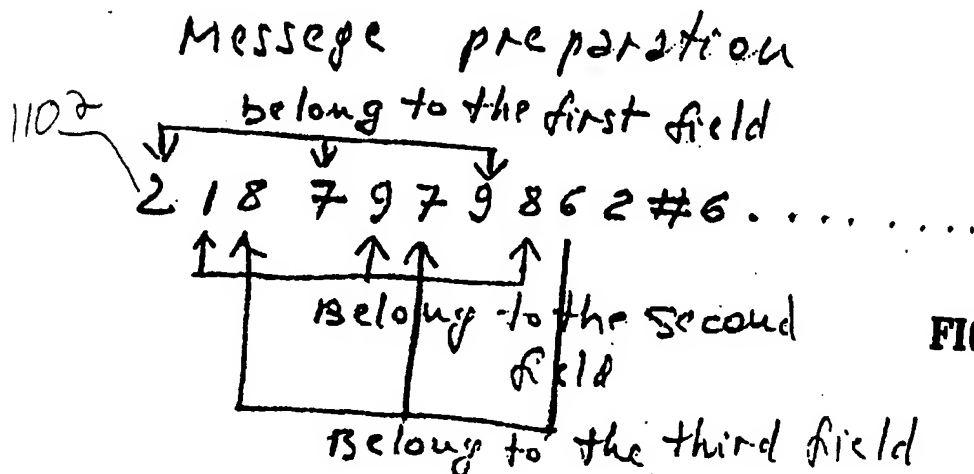 Messege preparation
1102
belong to the first field
2 1 8 7 9 7 9 8 6 2 # 6 . . . . . . . .
Belong to the second
field
FIG
Belong to the third field